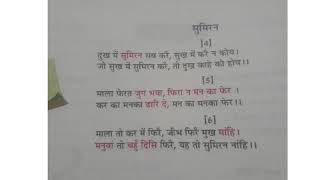 सुमिरन
[4]
दुख में सुमिरन सब करैं, सुख में करै न कोय।
जो सुख में सुमिरन करै, तो दुख काहे को होय।।
[5]
माला फेरत जुग भया, फिरा न मन का फेर।
कर का मनका डारि दे, मन का मनका फेर।।
[6]
माला तो कर में फिरै, जीभ फिरै मुख मांहि।
मनुवां तो चहुँ दिसि फिरै, यह तो सुमिरन नांहि।।